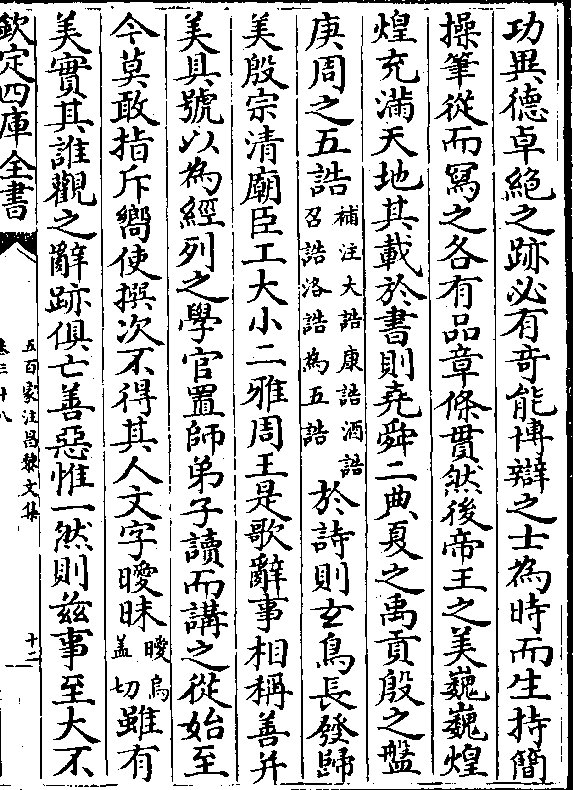 功異德卓絶之跡必有竒能博辯之士為時而生持簡
操筆從而寫之各有品章條貫然後帝王之美巍巍煌
煌充滿天地其載於書則堯舜二典夏之禹貢殷之盤
庚周之五誥補注大誥康誥酒誥召誥洛誥為五誥於詩則𤣥鳥長發歸
美殷宗清廟臣工大小二雅周王是歌辭事相稱善并
美具號以為經列之學官置師弟子讀而講之從始至
今莫敢指斥嚮使撰次不得其人文字曖昧曖烏蓋切雖有
美實其誰觀之辭跡俱亡善惡惟一然則兹事至大不
欽定四庫全書
五百家注昌黎文集
卷三十八
十二